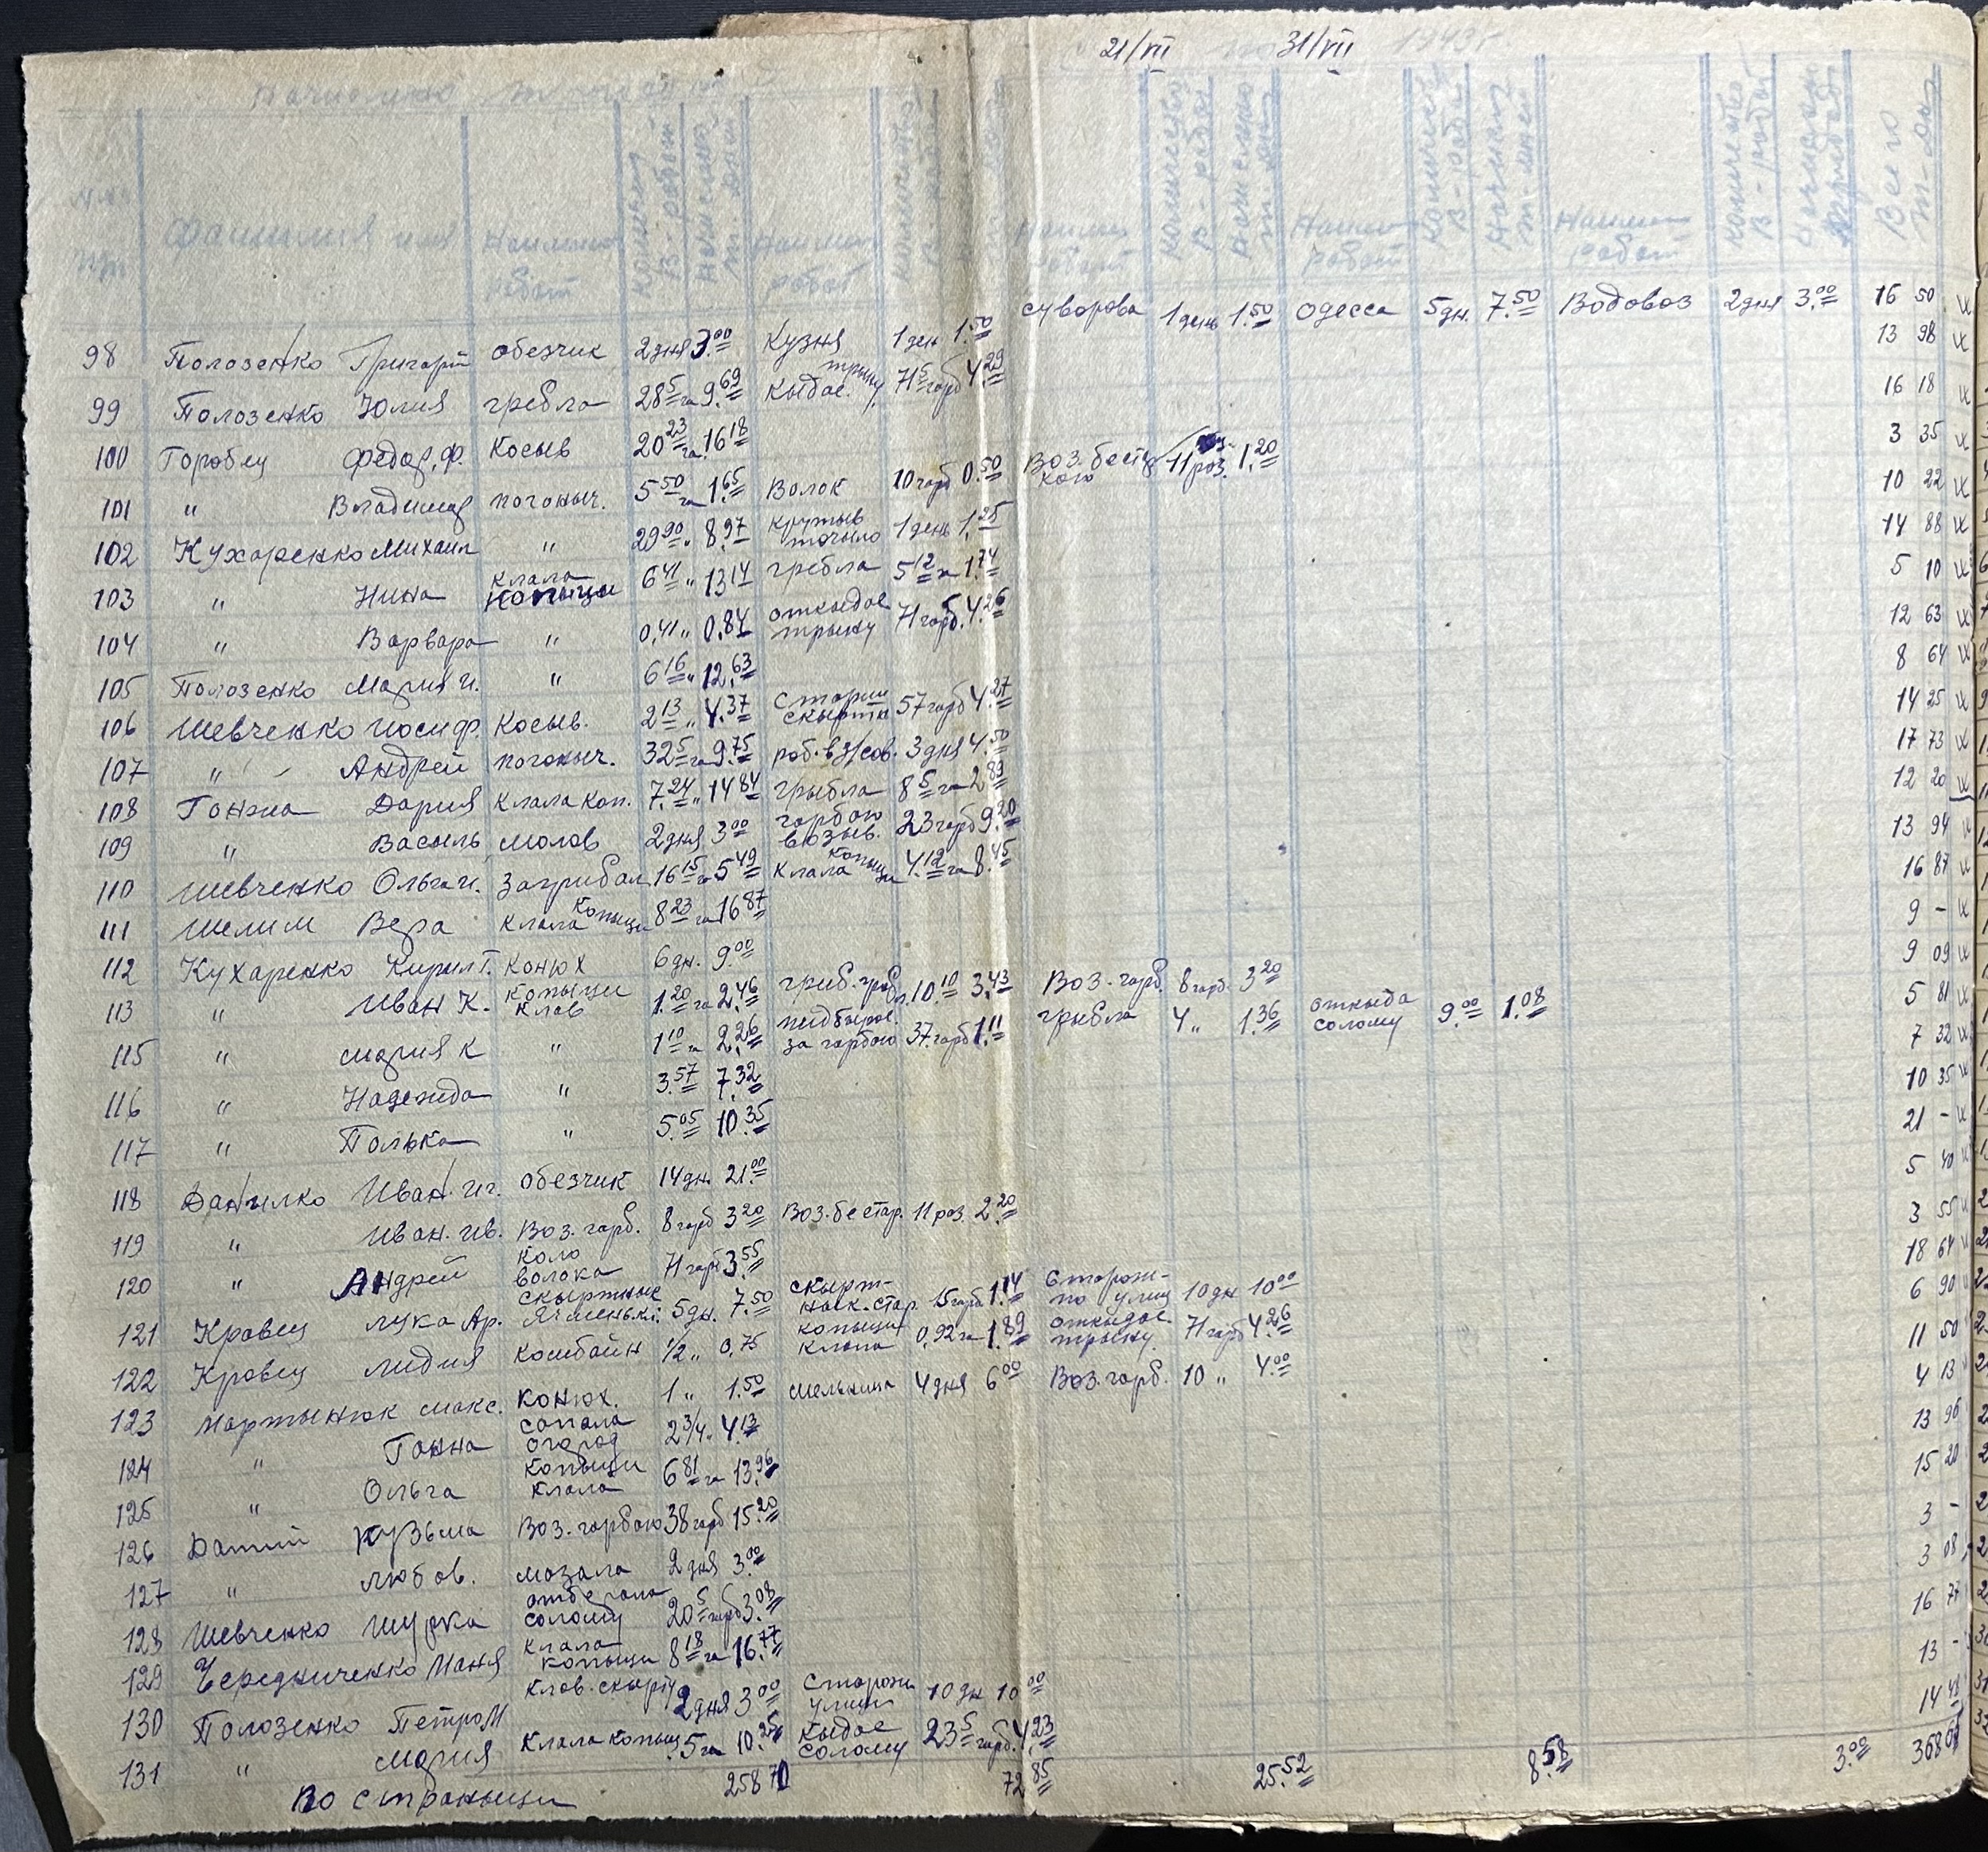 21/VII 31/VII 1943 г.
Фамилия имя
98 Полозенко Григорий обезчик 2 дня 3.00 Кузня 1 ден 1.50 Суворова 1 день 1.50 Одесса 5 дн. 7.50 Водовоз 2 дня 3.00 16 50
99 Полозенко Юлия гребла 28 5 га 9.69 Кыдае. трыну 71 5 гарб 4.29 13 98
100 Горобец Федор. Ф. Косыв 20 23 га 16 18 16 18
101 " Владимир погоныч. 5 50 га 1.65 Волок 10 гарб 0.50 Воз. бестар кою 11 роз. 1.20 3 35
102 Кухаренко Михаил " 29 90 " 8.97 крутыв точыло 1 день 1.25 10 22
103 " Нина Клала Копыци 6 41 " 13 14 гребла 5 12 га 1.74 14 88
104 " Варвара " 0,41 " 0.84 откыдае трыну 71 гарб. 4.26 5 10
105 Полозенко Мария И. " 6 16 " 12,63 12 63
106 Шевченко Иосиф. Косыв. 2 13 " 4.37 скырта 57 гарб 4.27 8 64
107 " Андрей погоныч. 32 5 га 9.75 роб. в з/сов. 3 дня 4.50 14 25
108 Ганжа Дария Клала коп. 7.24 " 14 84 грыбла 8 5 га 2 89 17 73
109 " Васыль молов 2 дня 3 00 гарбою возыв. 23 гарб 9.20 12 20
110 Шевченко Ольга И. Загрибал 16 15 га 5 49 Клала копыци 4.12 га 8.45 13 94
111 Шелим Вера Клала Копыци 8 23 га 16 87 16 87
112 Кухаренко Кирил Г. Конюх 6 дн. 9 00 9 -
113 " Иван К. Копыци Клав 1.20 га 2.46 10.10 3.43 Воз. гарб. 8 гарб 3 20 9 09
115 " Мария К " 1 10 га 2.26 пидбырае. за гарбою 37 гарб 1.11 грыбла 4 " 1.36 откыда солому 9.00 1.08 5 81
116 " Надежда " 3.57 7.32 7 32
117 " Полька " 5.05 10.35 10 35
118 Данилко Иван. Иг. Обезчик 14 дн. 21.00 21 -
119 " Иван. Ив. Воз. гарб. 8 гарб 3 20 Воз. бестар. 11 роз 2.20 5 40
120 " Андрей Коло волока 71 гарб 3.55 3 55
121 Кравец Лука Ар. скыртные Ячмень к. 5 дн. 7.50 Скырт- 15 гарб 1.14 Сторож- по улиц 10 дн 10 00 18 64
122 Кравец Лидия Комбайн 1/2 " 0,75 Копыци клала 0,92 га 1.89 откыдае трыну 71 гарб 4.26 6 90
123 Мартынюк Макс. Конюх. 1 " 1.50 мельница 4 дня 6 00 Воз. гарб. 10 " 4.00 11 50
124 " Ганна сапала огород 2 3/4 " 4.13 4 13
125 " Ольга Копыци Клала 6 81 га 13.96 13 96
126 Датий Кузьма Воз. гарбою 38 гарб 15.20 15 20
127 " Любов. мазала 2 дня 3.00 3 -
128 Шевченко Шурка отберала солому 20 5 гарб 3.08 3 08
129 Чередниченко Маня Клала копыци 8 18 га 16.77 16 77
130 Полозенко Петро М Клав. скырту 2 дня 3 00 Сторож улици 10 дн 10 00 13 -
131 " Мария Клала копыц 5 га 10.25 Кыдае солому 23 5 гарб. 4.23 14 48
По страныци 258 70 72 85 25.52 8.58 3.00